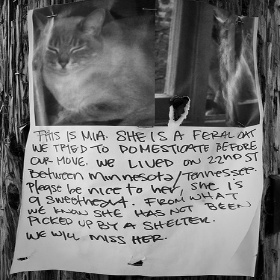 THIS IS MIA. SHE IS A FERAL CAT
WE TRIED TO DOMESTICATE BEFORE
OUR MOVE. WE LIVED ON 22ND ST
Between Minnesota/Tennessee.
Please be nice to her, SHE IS
a sweetheart. FROM WHAT
WE KNOW SHE HAS NOT BEEN
PICKED UP BY A SHELTER.
WE WILL MISS HER.